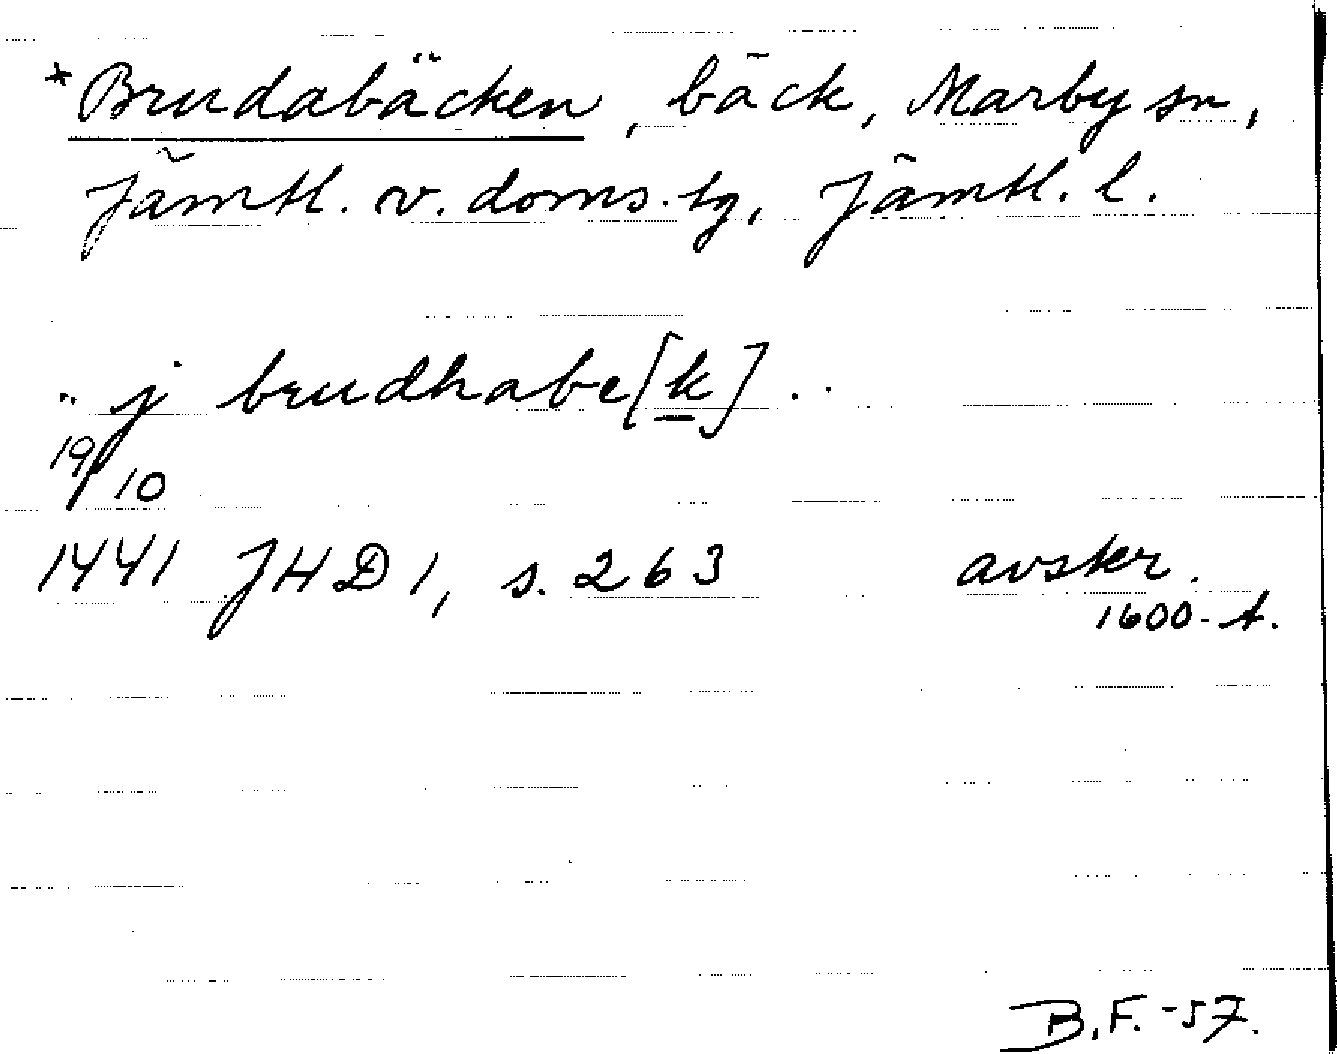 *Brudabäcken, bäck, Marby sn,
Jämtl. v. doms.lg, Jämtl. l.
.. j brudhabe[k] ..
19/10
1441 JHD 1, s. 263 avskr.
1600-t.
B.F. -57.